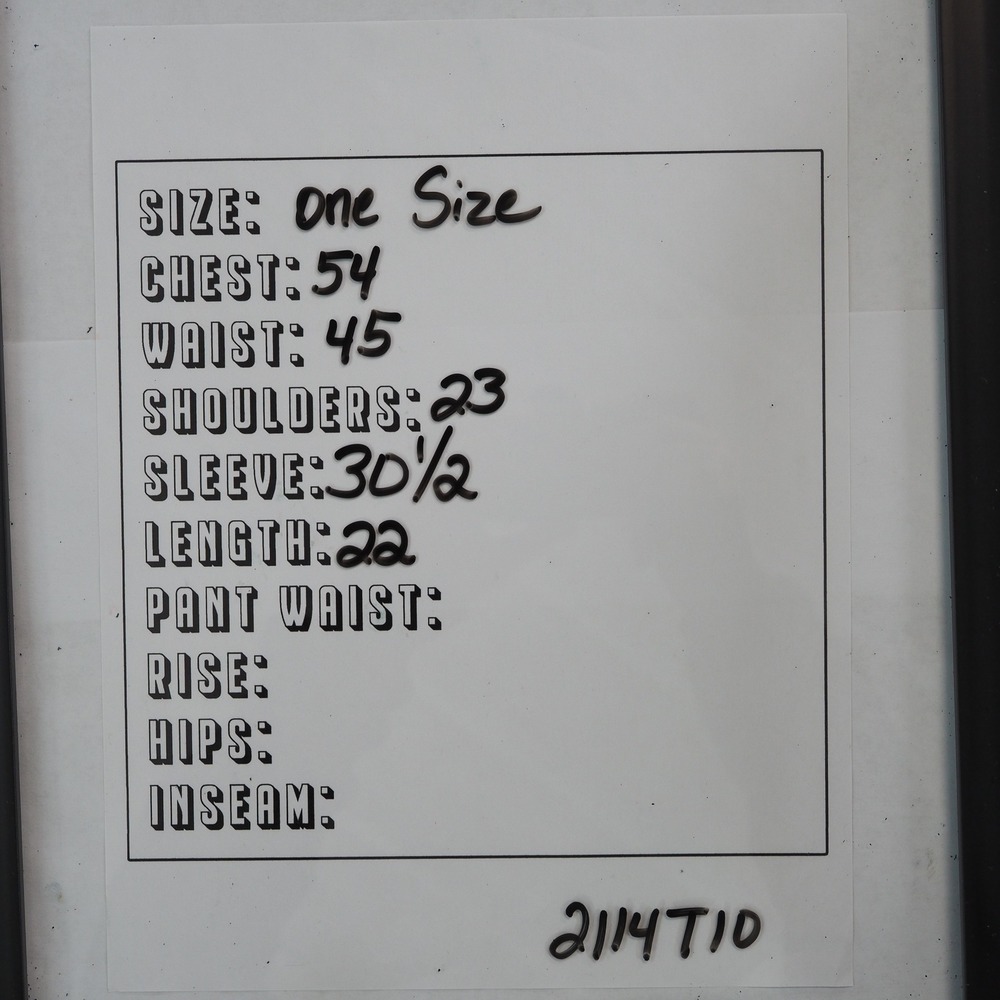 SIZE: one Size
CHEST: 54
WAIST: 45
SHOULDERS: 23
SLEEVE: 30 1/2
LENGTH: 22
PANT WAIST:
RISE:
HIPS:
INSEAM:
2114T10